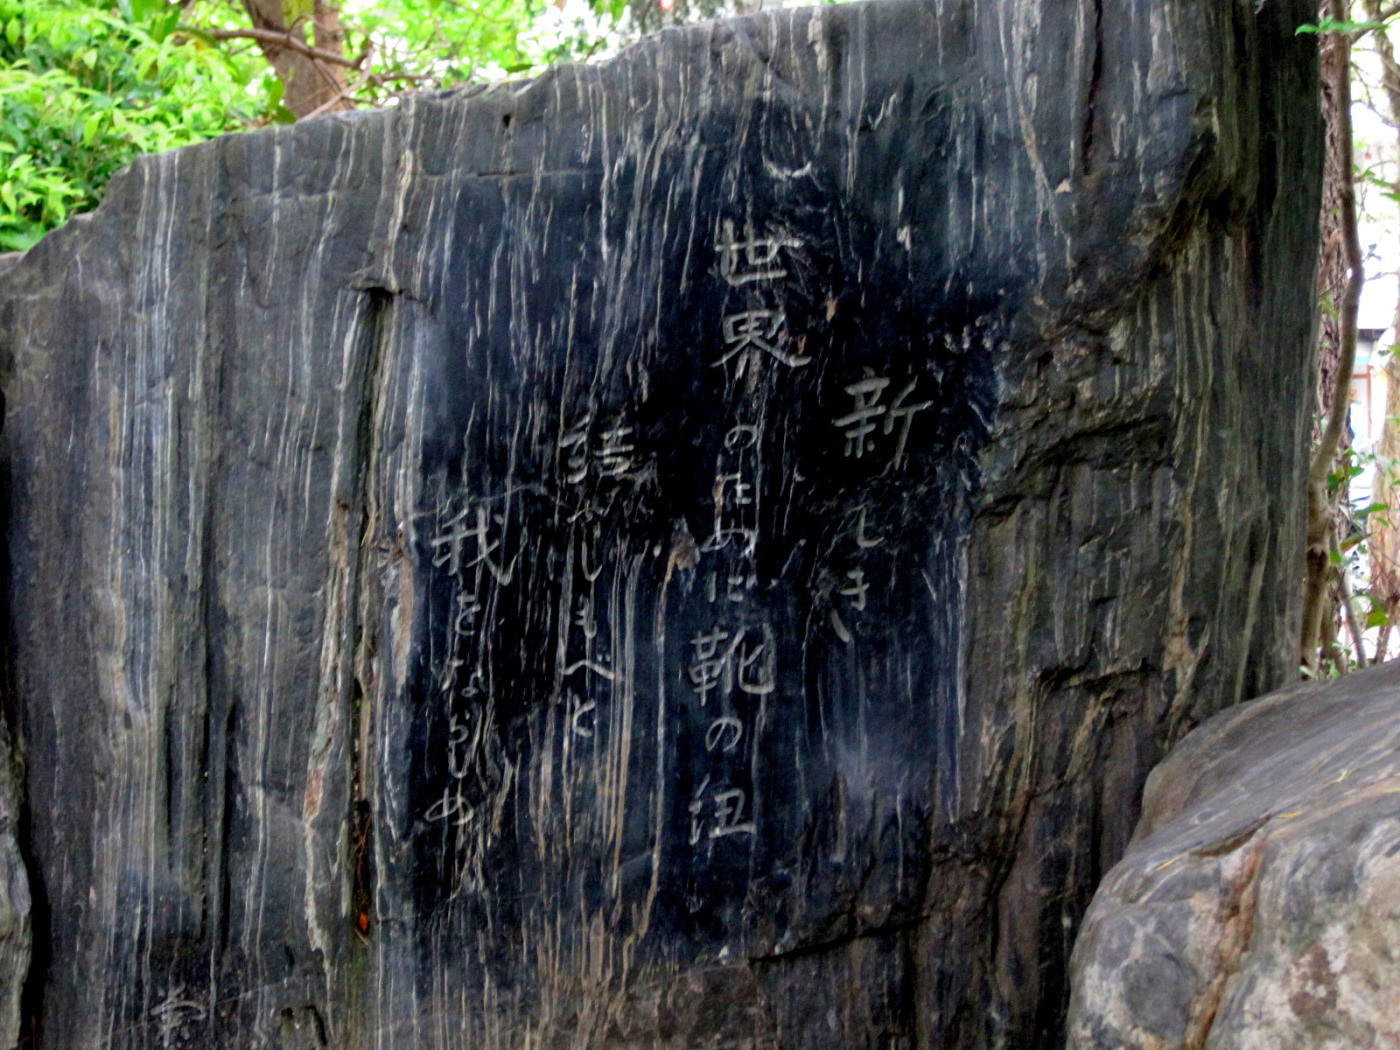 新しき
世界のために靴の紐
結びしもべと
我をならしめ